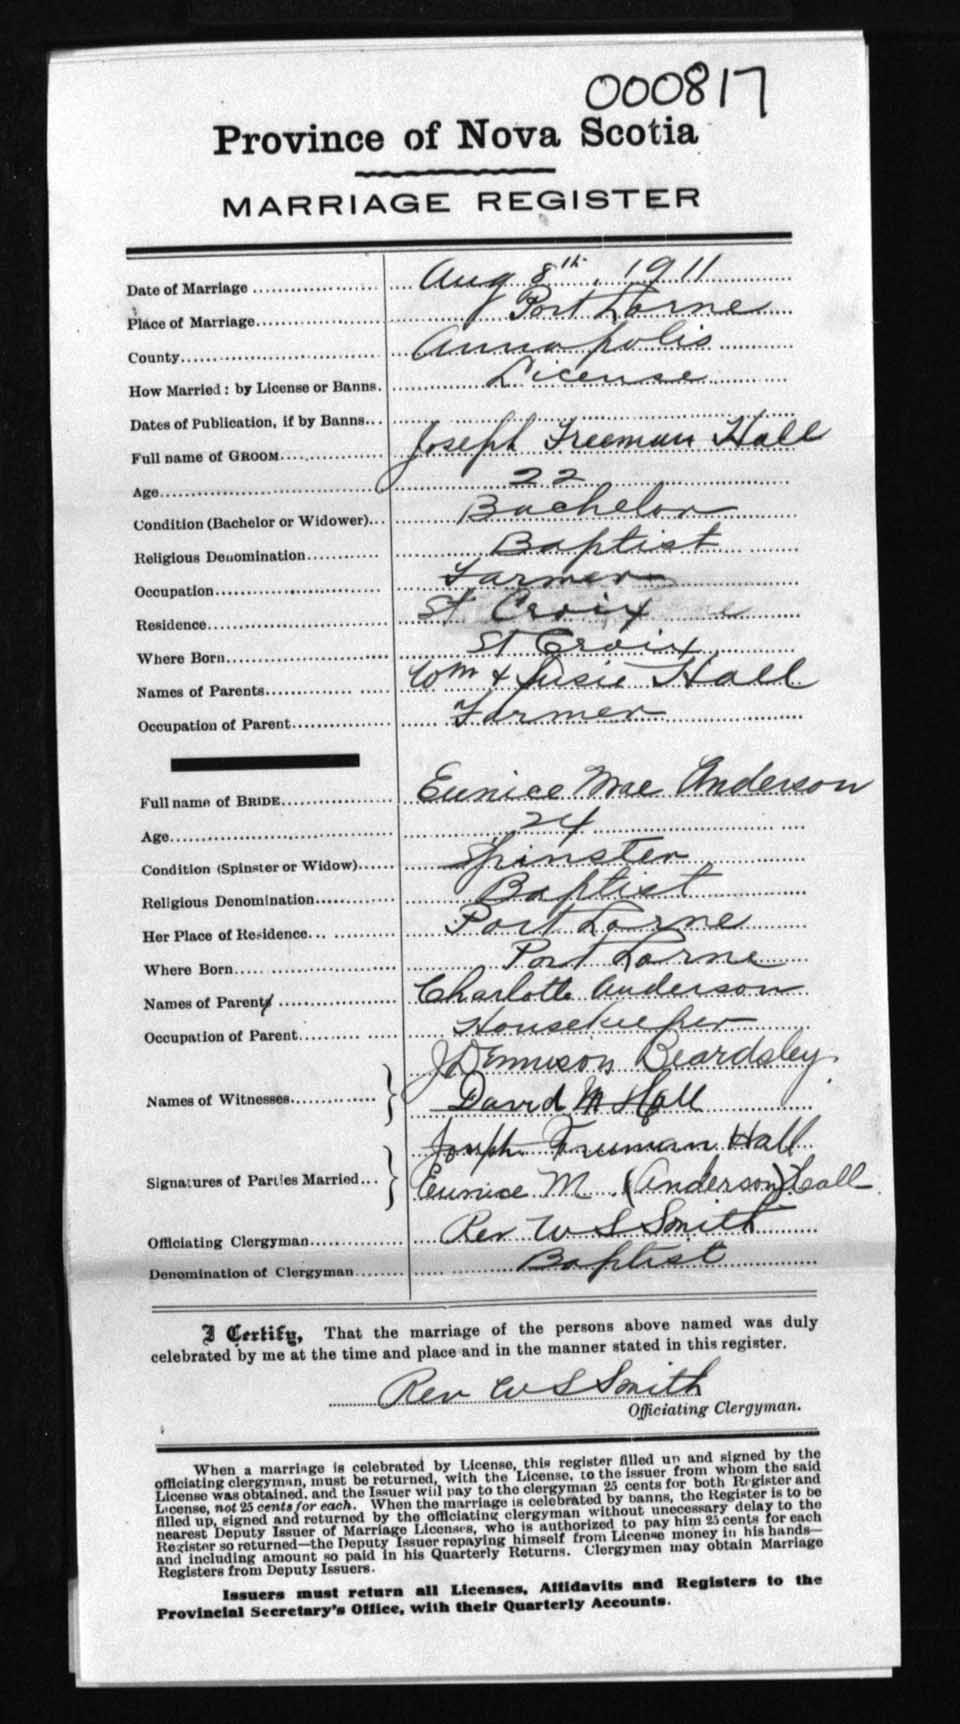 000817
Province of Nova Scotia
MARRIAGE REGISTER
Date of Marriage Aug 8th, 1911
Place of Marriage Port Lorne
County Annapolis
How Married: by License or Banns. License
Dates of Publication, if by Banns
Full name of GROOM Joseph Freeman Hall
Age 22
Condition (Bachelor or Widower) Bachelor
Religious Denomination Baptist
Occupation Farmer
Residence St Croix
Where Born St Croix
Names of Parents Wm & Susie Hall
Occupation of Parent Farmer
Full name of BRIDE Eunice Mae Anderson
Age 24
Condition (Spinster or Widow) Spinster
Religious Denomination Baptist
Her Place of Residence Port Lorne
Where Born Port Lorne
Names of Parents Charlotte Anderson
Occupation of Parent Housekeeper
J Dennison Beardsley
Names of Witnesses David M Hall
Joseph Freeman Hall
Signatures of Parties Married Eunice M (Anderson) Hall
Officiating Clergyman Rev W S Smith
Denomination of Clergyman Baptist
I Certify, That the marriage of the persons above named was duly
celebrated by me at the time and place and in the manner stated in this register.
Rev W S Smith
Officiating Clergyman.
When a marriage is celebrated by License, this register filled up and signed by the
officiating clergyman, must be returned, with the License, to the issuer from whom the said
License was obtained, and the Issuer will pay to the clergyman 25 cents for both Register and
License, not 25 cents for each. When the marriage is celebrated by banns, the Register is to be
filled up, signed and returned by the officiating clergyman without unnecessary delay to the
nearest Deputy Issuer of Marriage Licenses, who is authorized to pay him 25 cents for each
Register so returned—the Deputy Issuer repaying himself from License money in his hands—
and including amount so paid in his Quarterly Returns. Clergymen may obtain Marriage
Registers from Deputy Issuers.
Issuers must return all Licenses, Affidavits and Registers to the
Provincial Secretary's Office, with their Quarterly Accounts.